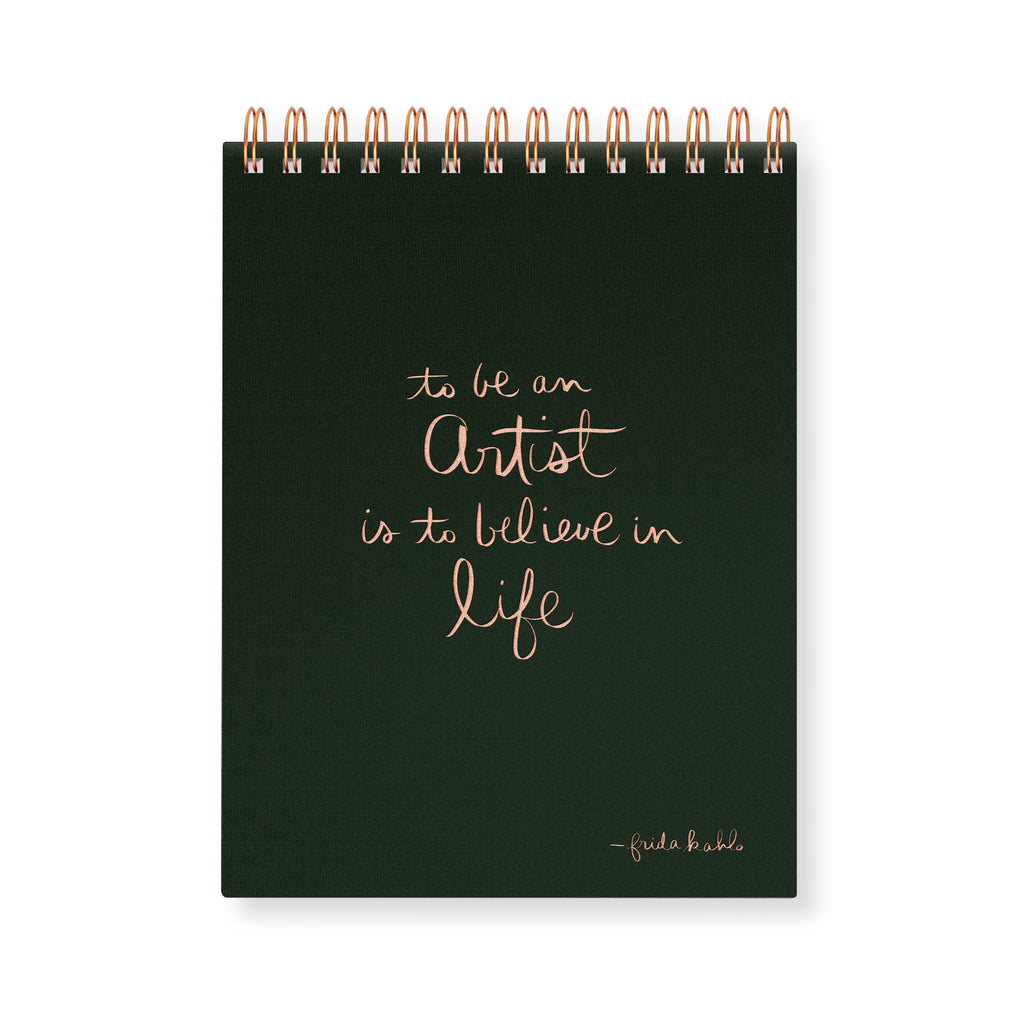 to be an
Artist
is to believe in
life
—frida kahlo